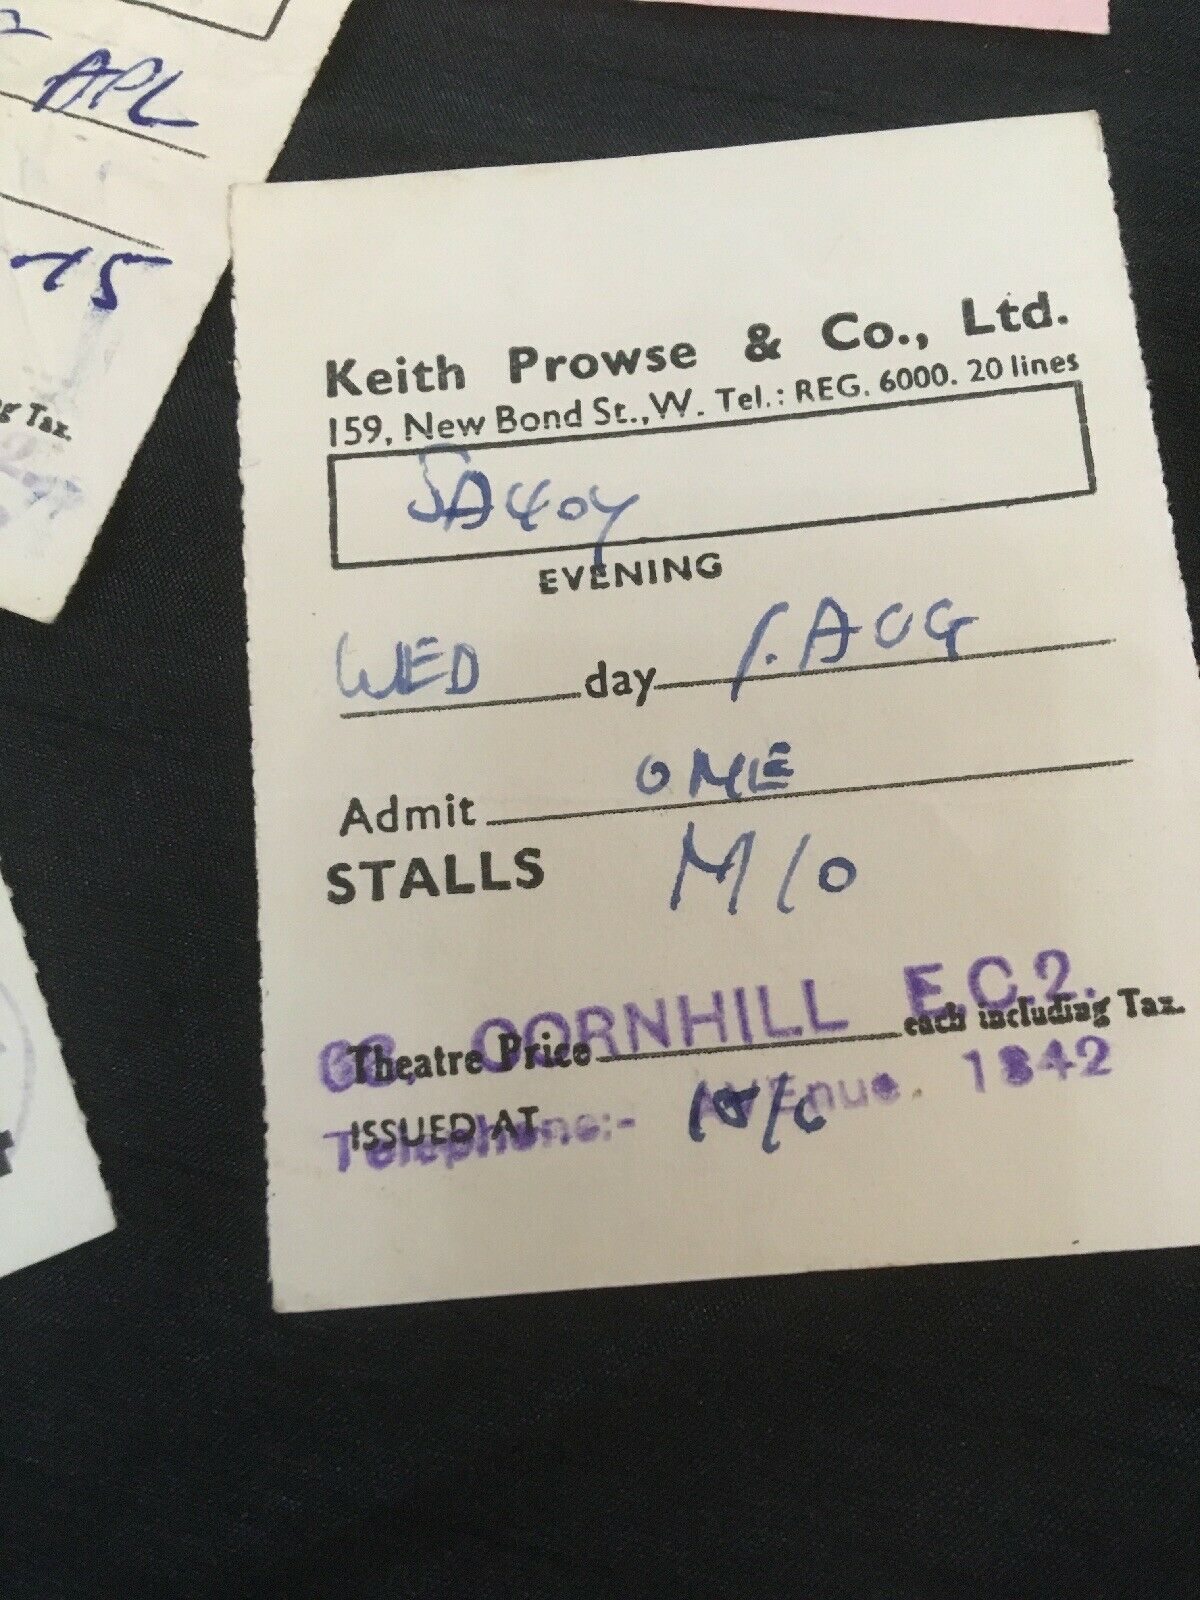 APL
15
g Tax.
Keith Prowse & Co., Ltd.
159, New Bond St., W. Tel.: REG. 6000. 20 lines
SAVOY
EVENING
WED day 1. AUG
Admit ONE
STALLS M10
CORNHILL E.C.2.
Theatre Price each including Tax.
Telephone:- AVEnue 1342
ISSUED AT